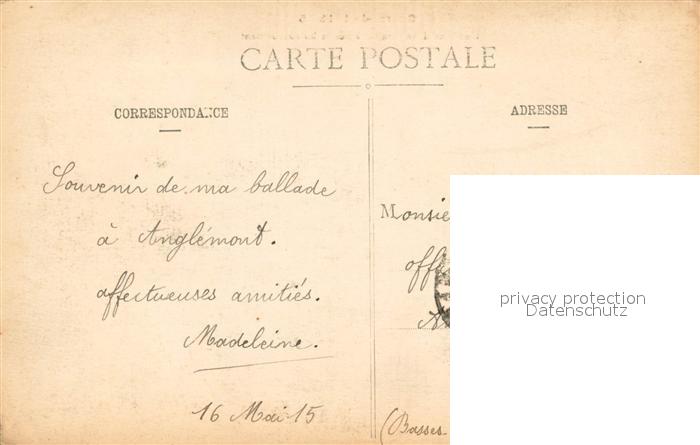 CARTE POSTALE
CORRESPONDANCE
ADRESSE
Souvenir de ma ballade
à Anglémont.
affectueuses amitiés.
Madeleine.
16 Mai 15
Monsie
offi
A
(Basses-
privacy protection
Datenschutz